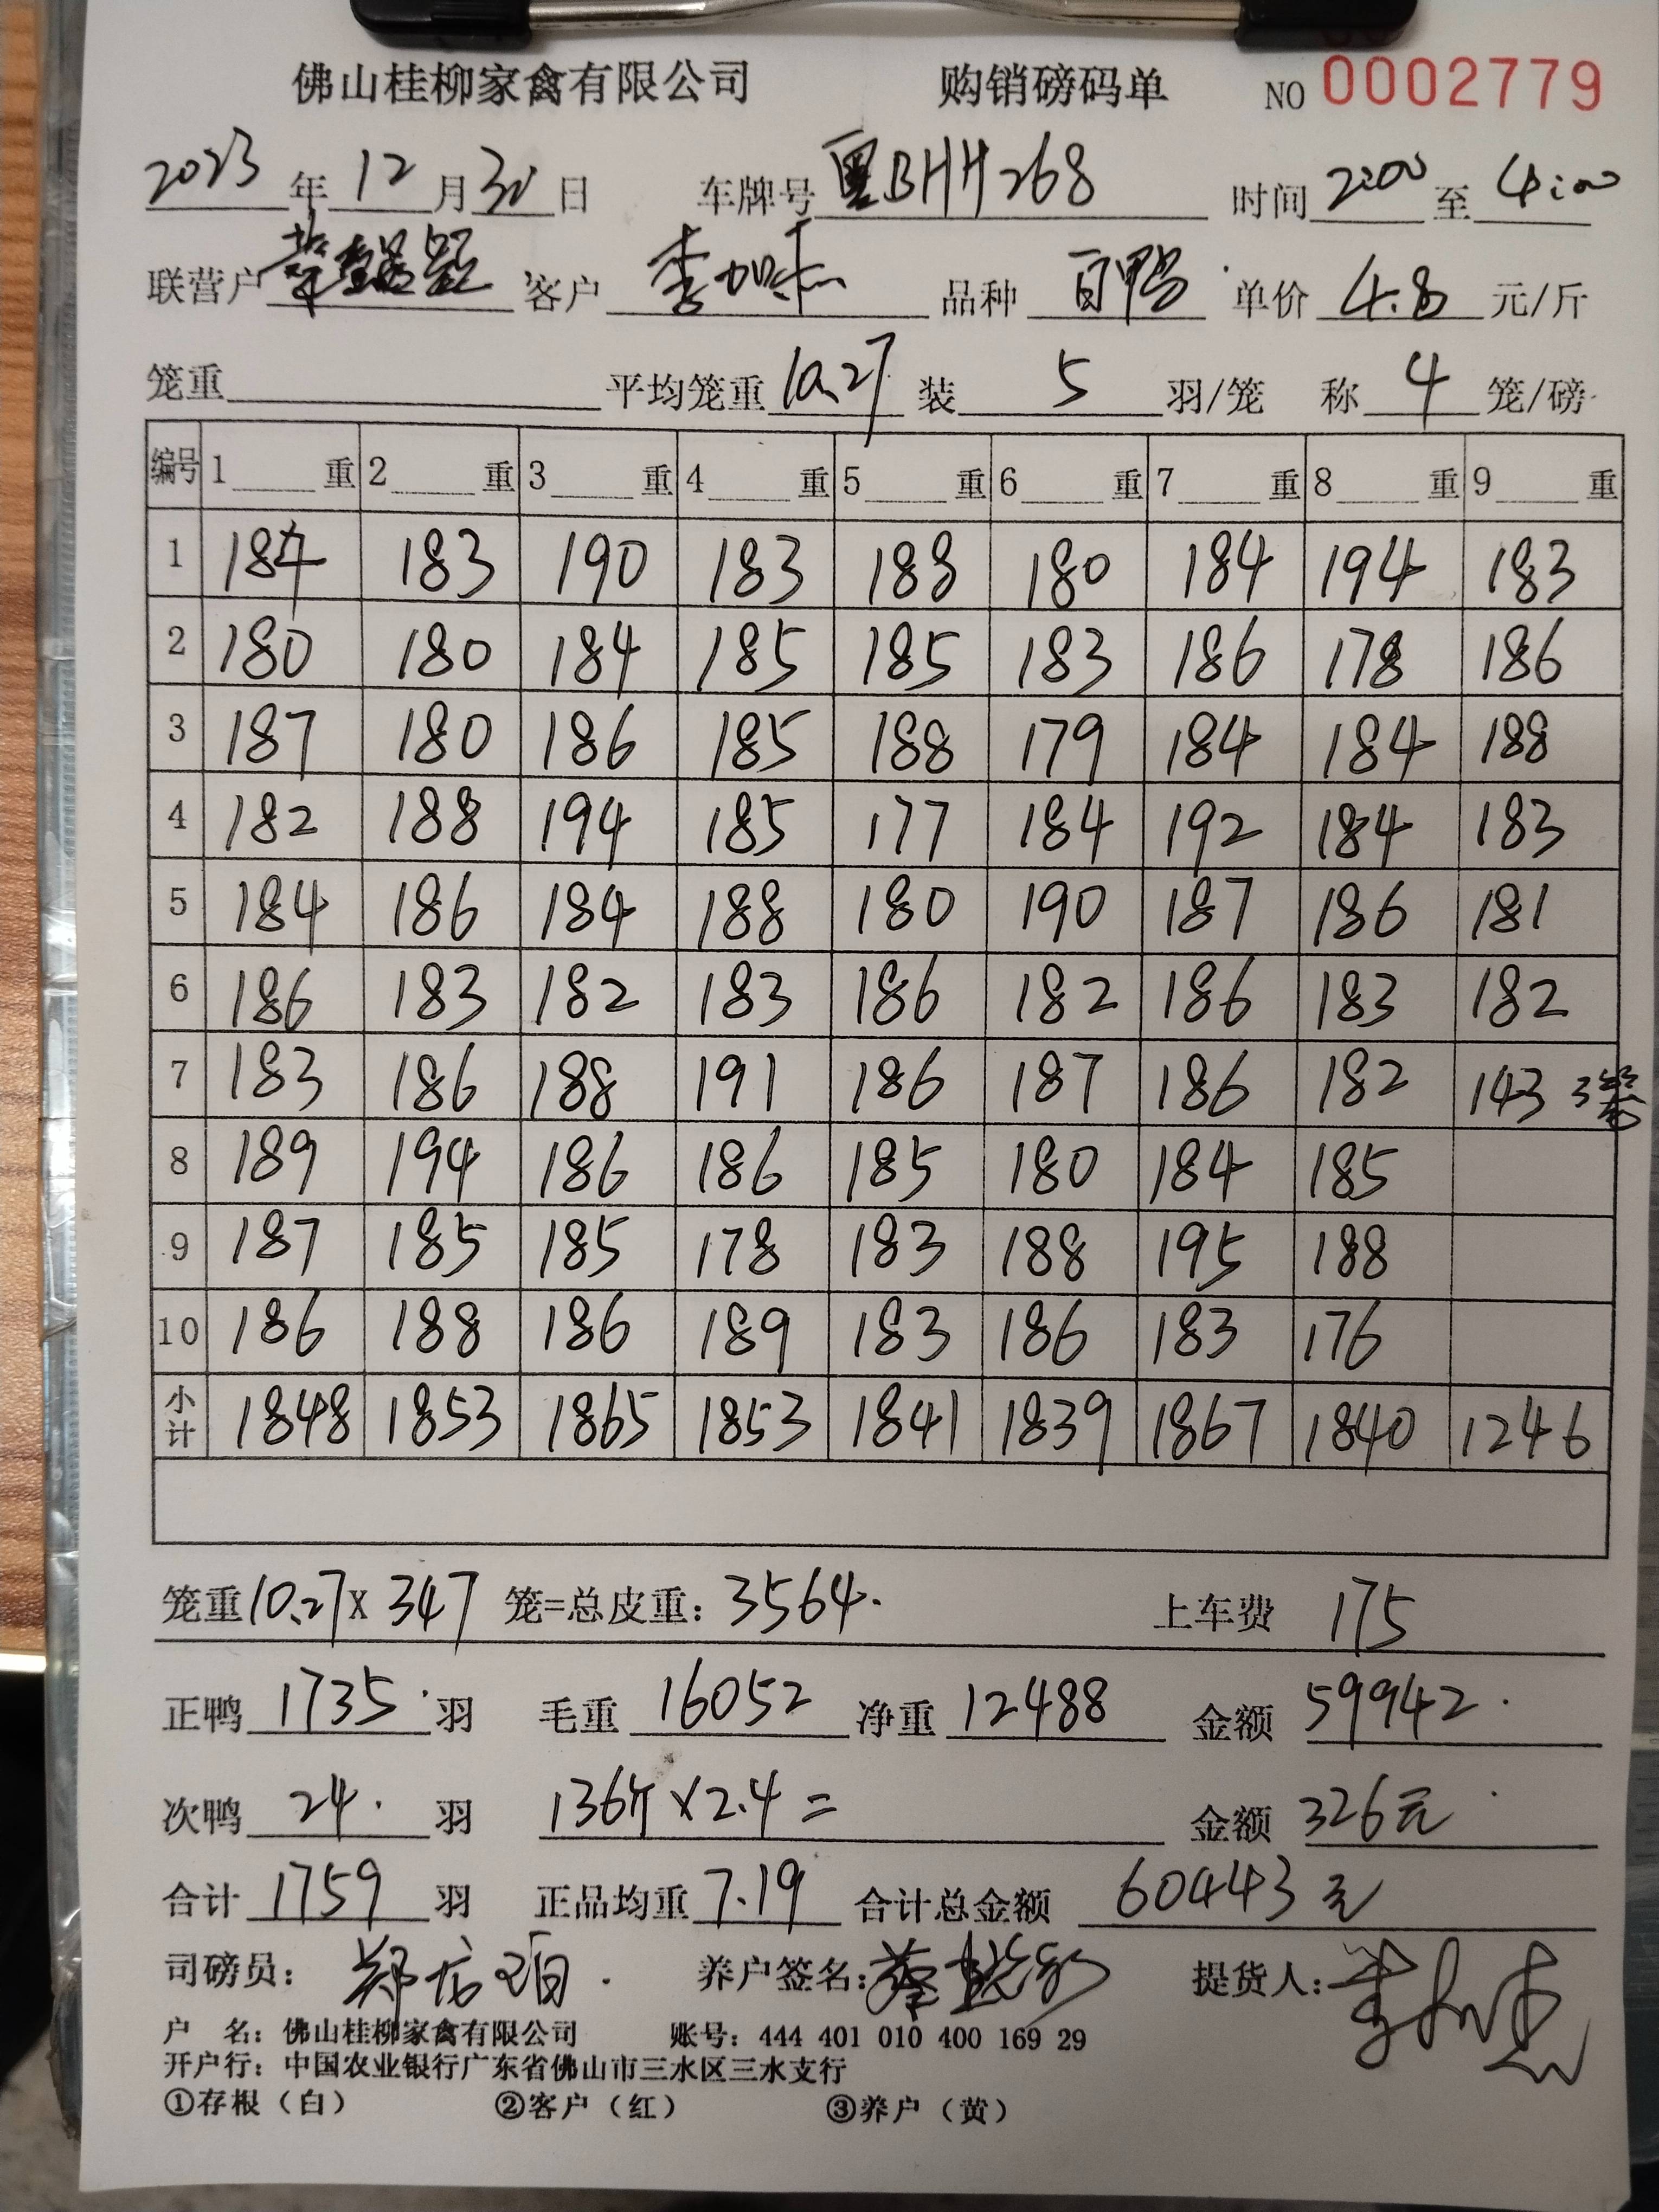 佛山桂柳家禽有限公司 购销磅码单 NO 0002779
2023年12月30日 车牌号粤BHH268 时间2:00至4:00
联营户 客户李加志 品种白鸭 单价4.8元/斤
笼重 平均笼重10.27 装5羽/笼 称4笼/磅
编号 1 重 2 重 3 重 4 重 5 重 6 重 7 重 8 重 9 重
1 184 183 190 183 188 180 184 194 183
2 180 180 184 185 185 183 186 178 186
3 187 180 186 185 188 179 184 184 188
4 182 188 194 185 177 184 192 184 183
5 184 186 184 188 180 190 187 186 181
6 186 183 182 183 186 182 186 183 182
7 183 186 188 191 186 187 186 182 143 3笼
8 189 194 186 186 185 180 184 185
9 187 185 185 178 183 188 195 188
10 186 188 186 189 183 186 183 176
小计 1848 1853 1865 1853 1841 1839 1867 1840 1246
笼重10.27X 347 笼=总皮重：3564. 上车费 175
正鸭1735.羽 毛重16052 净重12488 金额59942.
次鸭24.羽 136斤×2.4= 金额326元
合计1759羽 正品均重7.19 合计总金额60443元
司磅员： 养户签名： 提货人：李加志
户 名：佛山桂柳家禽有限公司 账号：444 401 010 400 169 29
开户行：中国农业银行广东省佛山市三水区三水支行
①存根（白） ②客户（红） ③养户（黄）